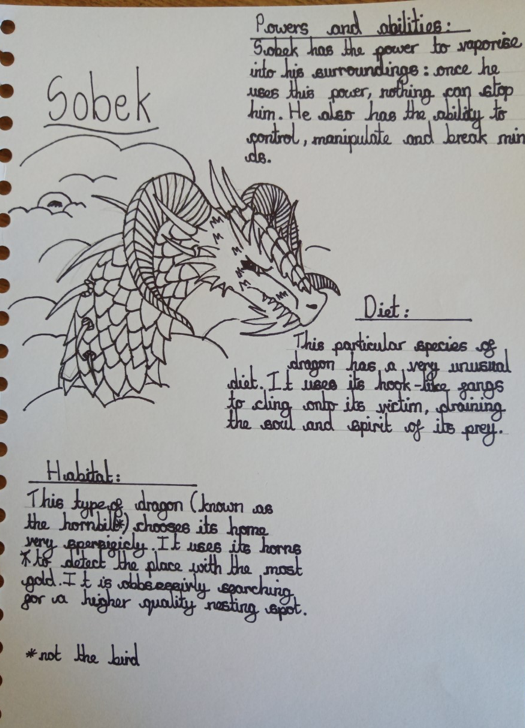 Sobek
Powers and abilities:
Sobek has the power to vaporise
into his surroundings: once he
uses this power, nothing can stop
him. He also has the ability to
control, manipulate and break min
ds.
Diet:
This particular species of
dragon has a very unusual
diet. It uses its hook-like fangs
to cling onto its victim, draining
the soul and spirit of its prey.
Habitat:
This type of dragon (known as
the hornbill*) chooses its home
very spersificly. It uses its horns
* to detect the place with the most
gold. It is obbsessivly searching
for a higher quality nesting spot.
*not the bird